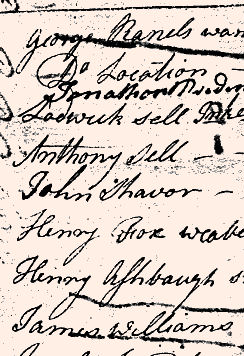 George Ranels wan
Do Location
Jonathan
Lodwick Sell
Anthony Sell -
John Shavor -
Henry Fox
Henry Ashbaugh
James Williams